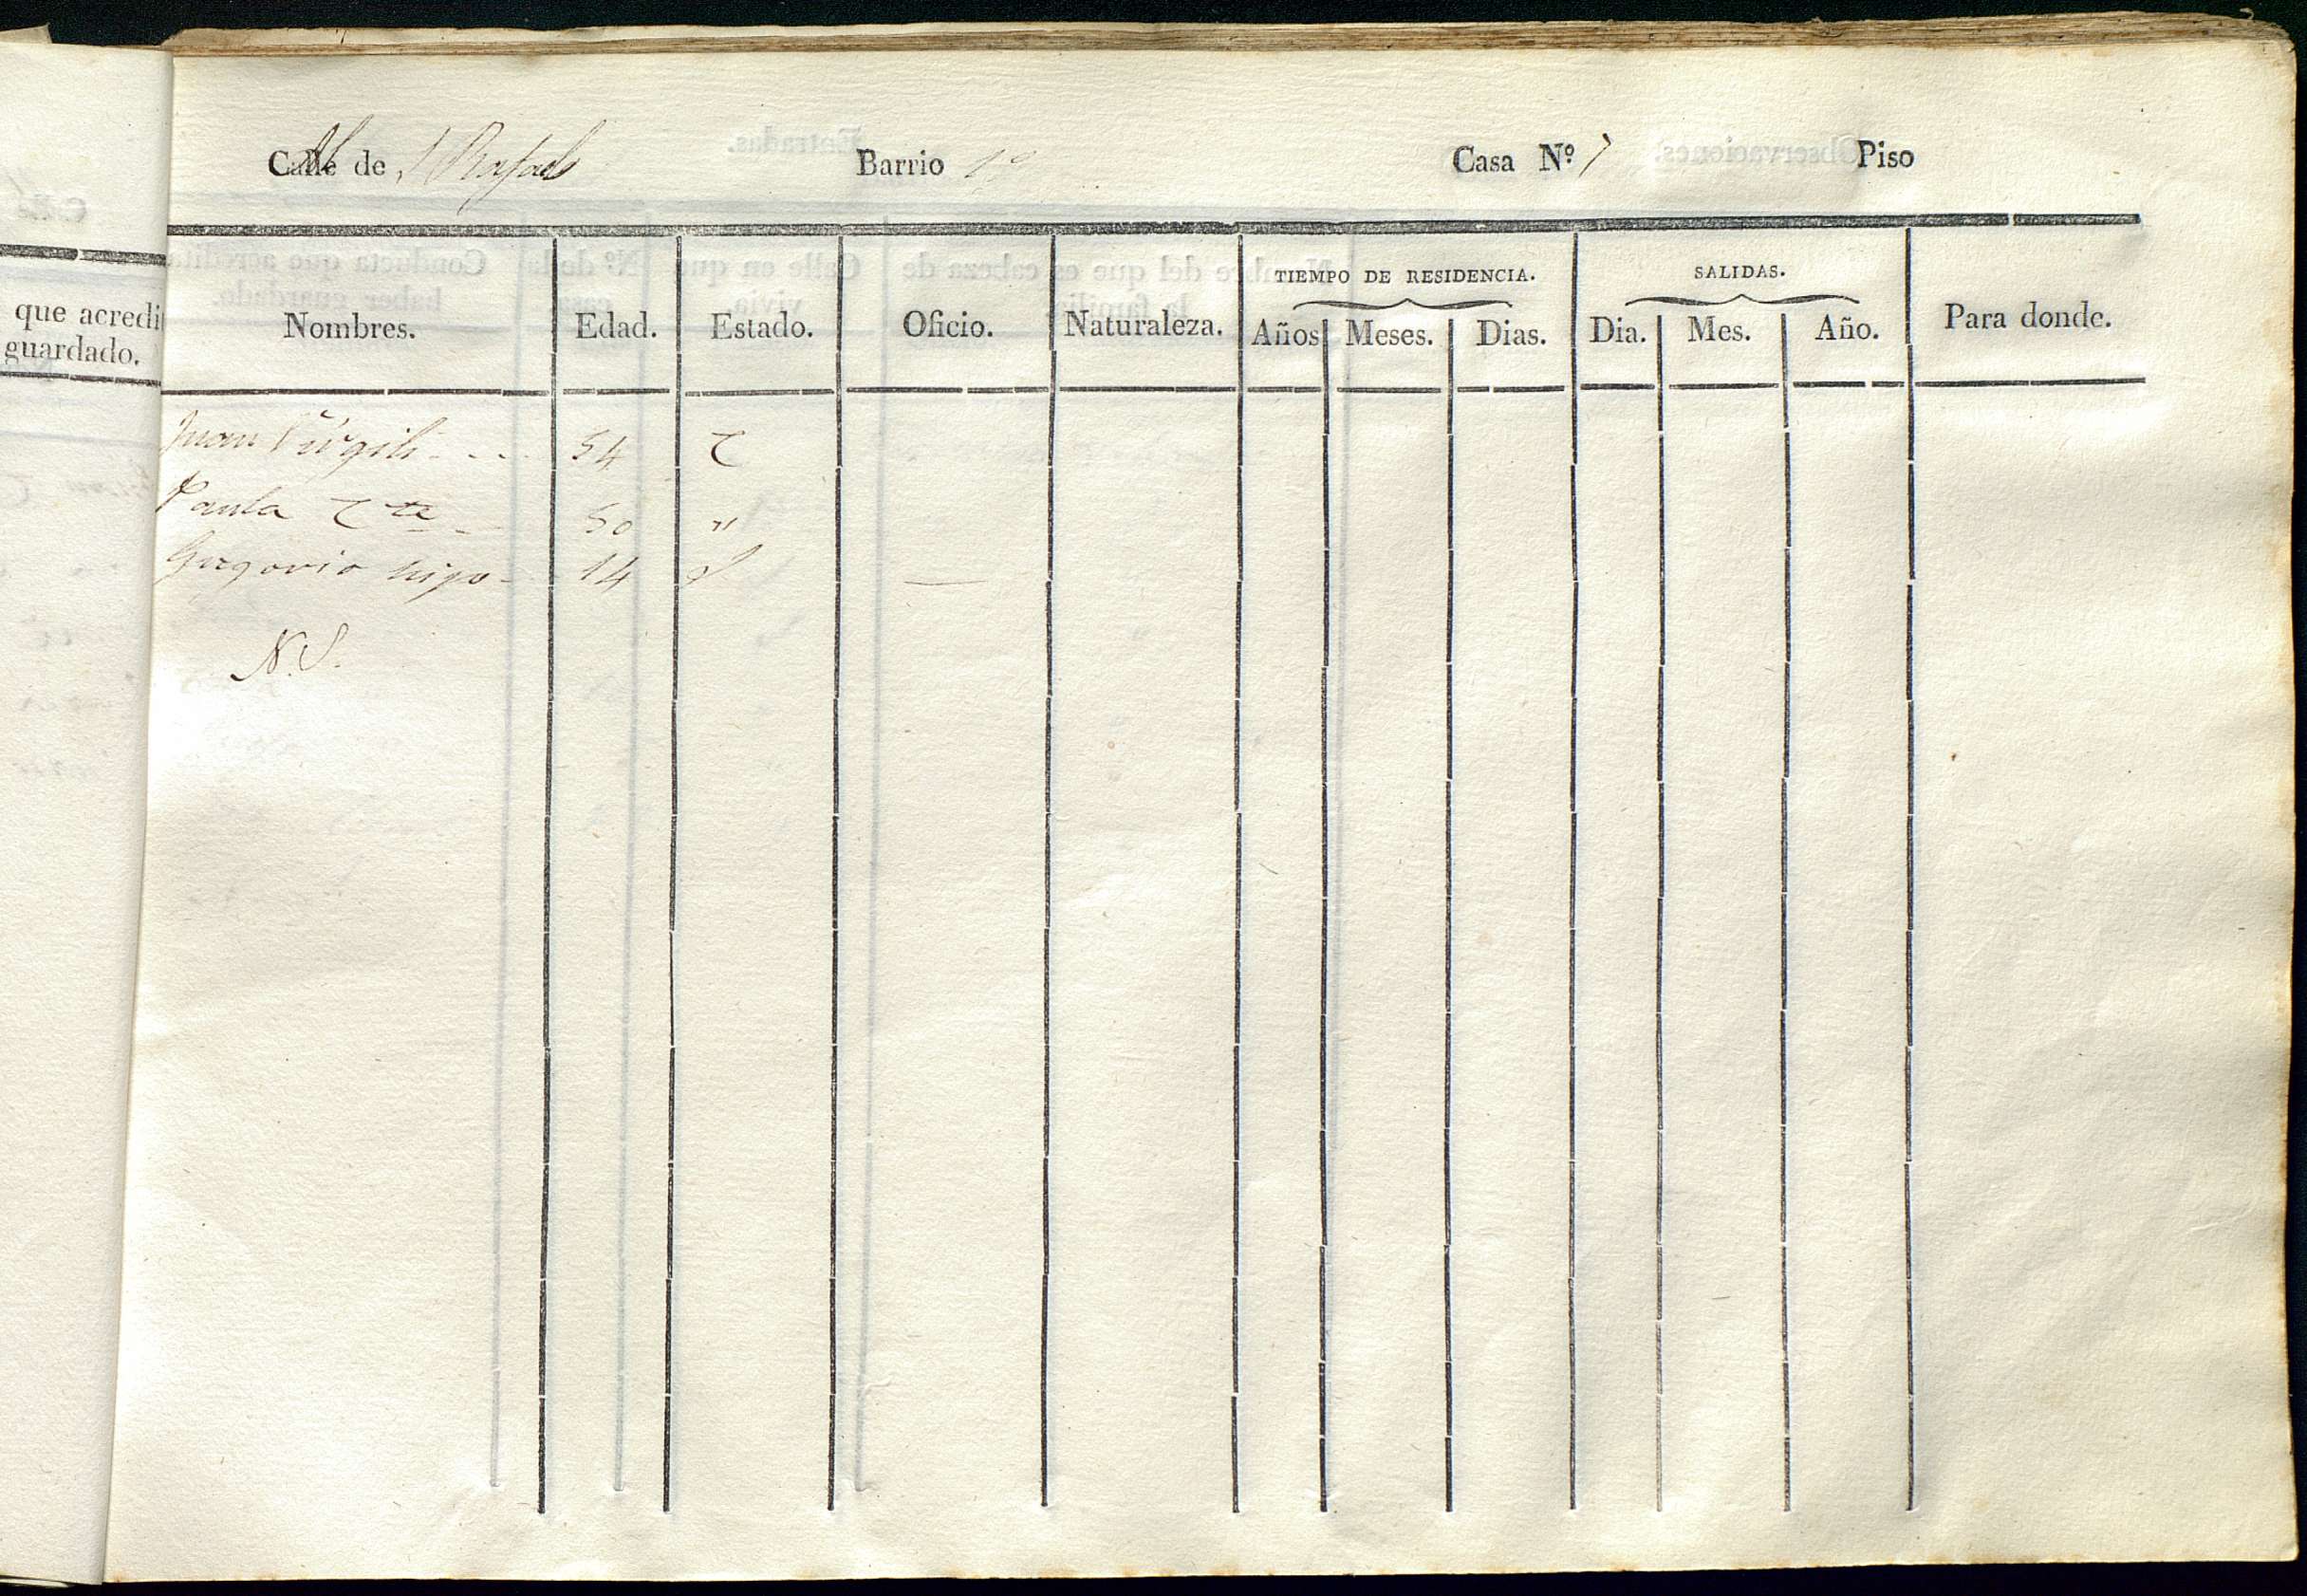 Calle de S Rafael Barrio 1º Casa Nº 7 Piso
que acredi
guardado.
TIEMPO DE RESIDENCIA. SALIDAS.
Nombres. Edad. Estado. Oficio. Naturaleza. Años Meses. Dias. Dia. Mes. Año. Para donde.
Juan Virgili - - - 54 C
Paula C te - 50 "
Gregorio hijo - 14 S —
N.S.